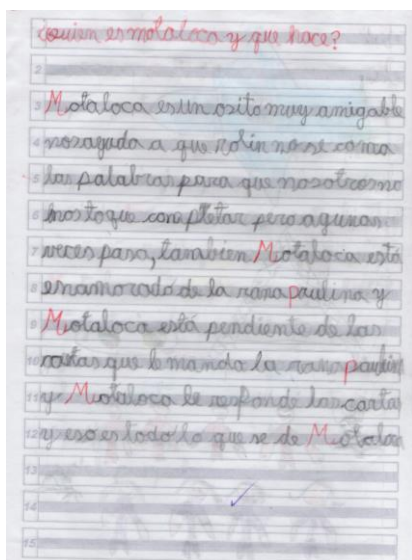 ¿quien es motaloca y que hace?
2
3 Motaloca es un osito muy amigable
4 nos ayuda a que rolin no se coma
5 las palabras para que nosotros no
6 nos toque completar pero agunas
7 veces pasa, tambien Motaloca está
8 enamorado de la rana paulina y
9 Motaloca está pendiente de las
10 cartas que le manda la rana paulin
11 y Motaloca le responde las carta
12 y eso es todo lo que se de Motaloc
13
14
15